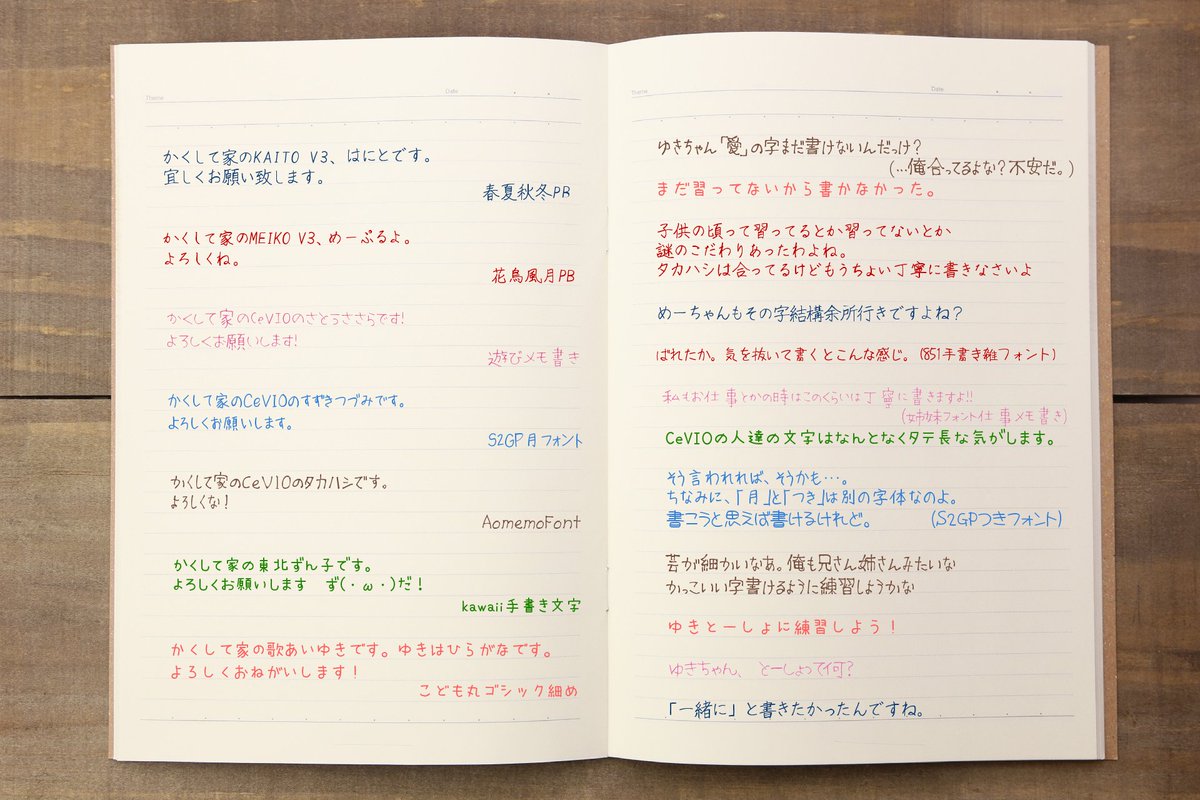 Theme
Date
かくして家のKAITO V3、はにとです。
宜しくお願い致します。
春夏秋冬PB
かくして家のMEIKO V3、めーぷるよ。
よろしくね。
花鳥風月PB
かくして家のCeVIOのさとうささらです!
よろしくお願いします!
遊びメモ書き
かくして家のCeVIOのすずきつづみです。
よろしくお願いします。
S2GP月フォント
かくして家のCeVIOのタカハシです。
よろしくな!
AomemoFont
かくして家の東北ずん子です。
よろしくお願いします ず(・ω・)だ!
kawaii手書き文字
かくして家の歌あいゆきです。ゆきはひらがなです。
よろしくおねがいします!
こども丸ゴシック細め
Theme
Date
ゆきちゃん「愛」の字まだ書けないんだっけ?
(…俺合ってるよな?不安だ。)
まだ習ってないから書かなかった。
子供の頃って習ってるとか習ってないとか
謎のこだわりあったわよね。
タカハシは合ってるけどもうちょい丁寧に書きなさいよ
めーちゃんもその字結構余所行きですよね?
ばれたか。気を抜いて書くとこんな感じ。(851手書き雑フォント)
私もお仕事とかの時はこのくらいは丁寧に書きますよ!!
(姉妹フォント仕事メモ書き)
CeVIOの人達の文字はなんとなくタテ長な気がします。
そう言われれば、そうかも…。
ちなみに、「月」と「つき」は別の字体なのよ。
書こうと思えば書けるけれど。 (S2GPつきフォント)
芸が細かいなあ。俺も兄さん姉さんみたいな
かっこいい字書けるように練習しようかな
ゆきとーしょに練習しよう!
ゆきちゃん、とーしょって何?
「一緒に」と書きたかったんですね。